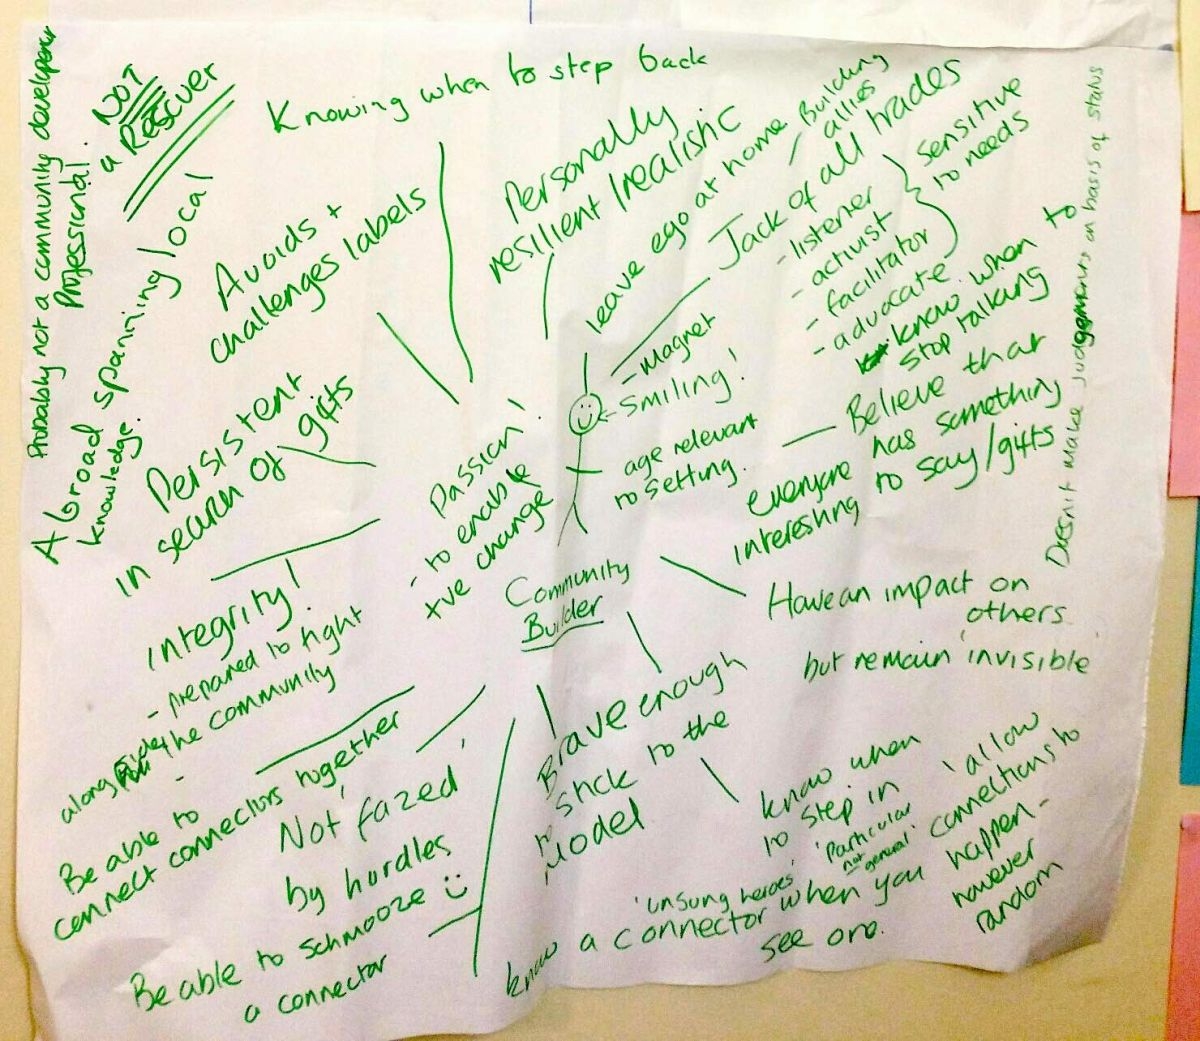 Knowing when to step back
Probably not a community developer
Professional.
NOT
a Rescuer
A broad spanning local
knowledge.
Avoids +
challenges labels
Personally
resilient / realistic
leave ego at home
Building
allies
Jack of all trades
- listener
- activist
- facilitator
- advocate
sensitive
to needs
know when to
stop talking
Doesn't make judgements on basis of status
- Magnet
smiling!
age relevant
to setting.
Believe that
everyone has something
interesting to say/gifts
Persistent
in search of gifts
Passion!
- to enable
+ve change
Community
Builder
Have an impact on
others
but remain 'invisible'
integrity!
- prepared to fight
alongside the community
-
Be able to
connect connectors together
Not 'fazed'
by hurdles
Be able to schmooze
a connector
Brave enough
to stick to the
Model
know when
to step in
'Particular
not general'
'allow
connections to
happen -
however
random
'unsung heroes'
know a connector when you
see one.